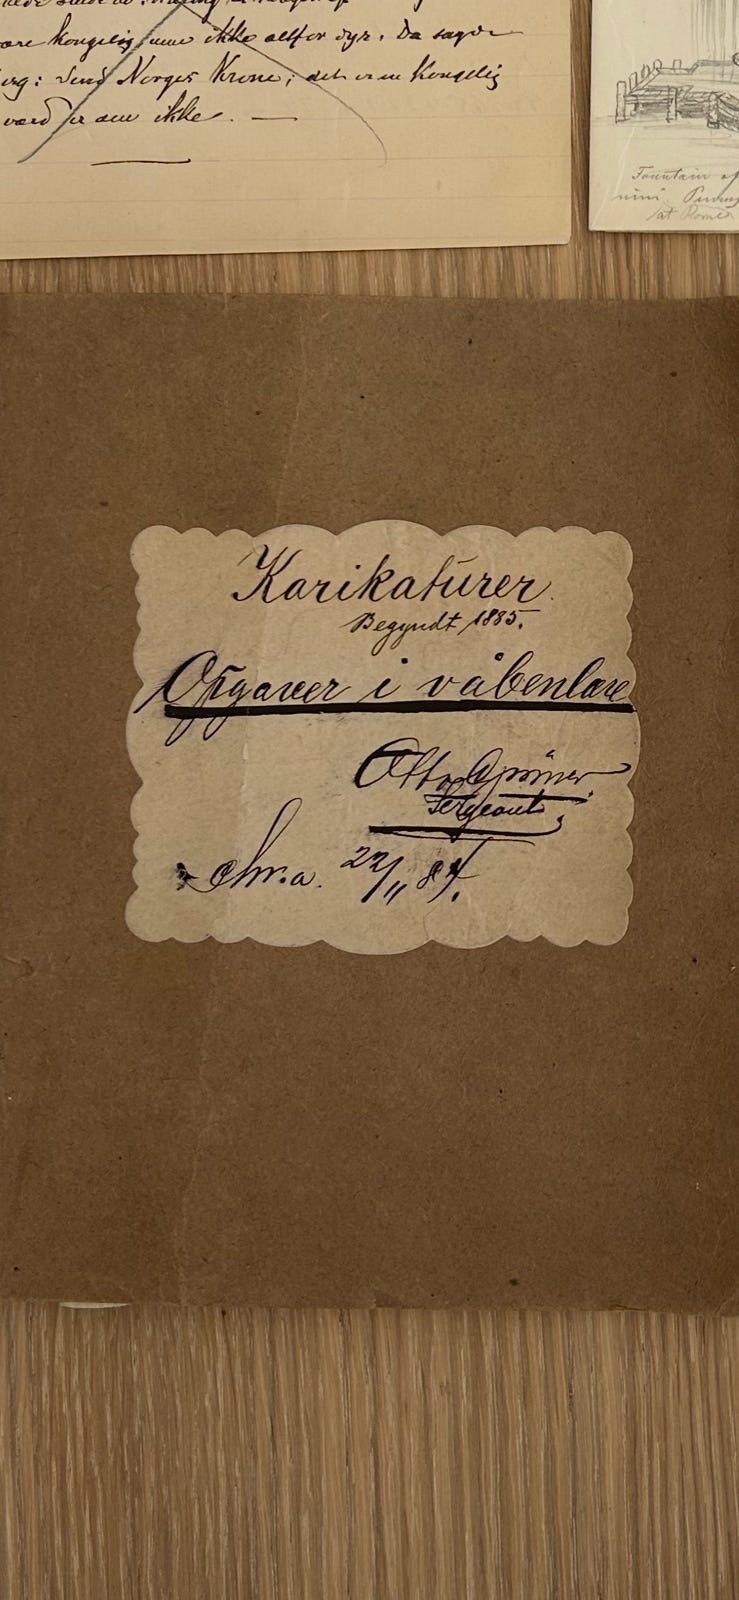 være kongelig, men ikke altfor dyr. Da sagde
: Send Norges Krone; det er en Kongelig
ikke. —
Fountain of
at Rome
Karikaturer.
Begyndt 1885.
Opgaver i våbenlære
Otto
Sergeant.
Chr.a. 22/11 84.